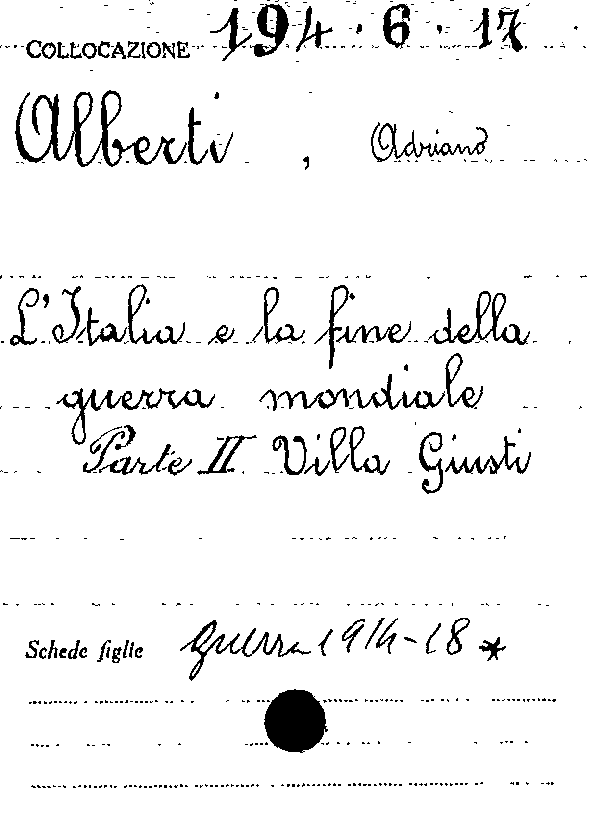 COLLOCAZIONE 194.6.17
Alberti, Adriano
L'Italia e la fine della
guerra mondiale
Parte II Villa Giusti
Schede figlie guerra 1914-18 *